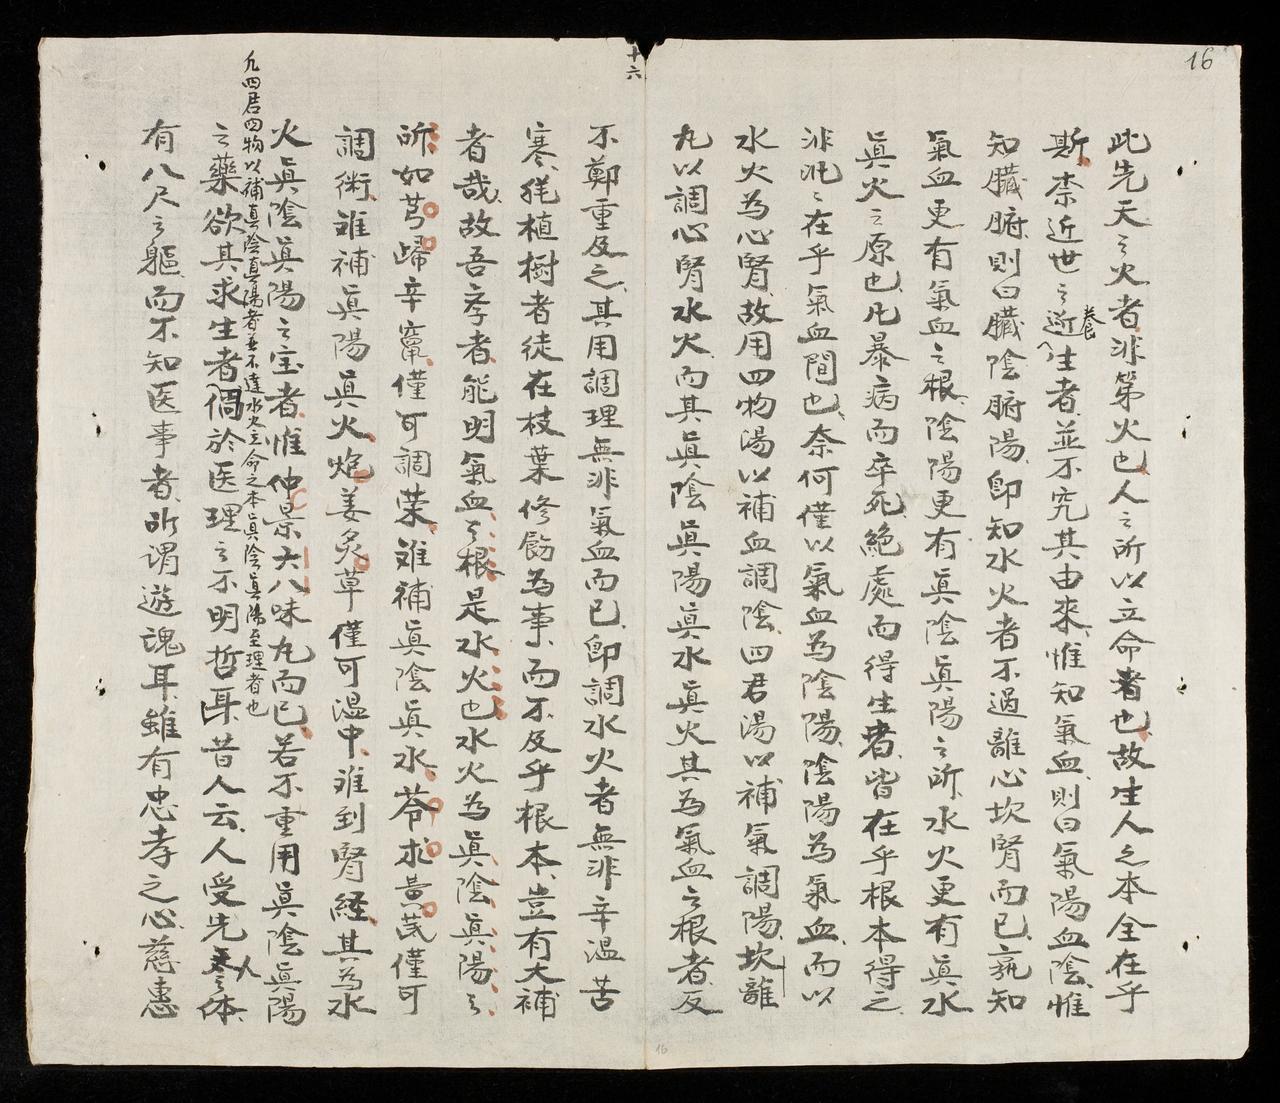 16
此先天之火者非第火也人之所以立命者也故生人之本全在乎
斯柰近世之逝養生者並不究其由來惟知氣血則曰氣陽血陰惟
知臟腑則曰臟陰腑陽即知水火者不過離心坎腎而已孰知
氣血更有氣血之根陰陽更有眞陰眞陽之所水火更有眞水
眞火之原也凡暴病而卒死絕處而得生者皆在乎根本得之
非此之在乎氣血間也奈何僅以氣血為陰陽陰陽為氣血而以
水火為心腎故用四物湯以補血調陰四君湯以補氣調陽坎離
丸以調心腎水火而其眞陰眞陽眞水眞火其為氣血之根者反
十六
不鄭重及之其用調理無非氣血而已即調水火者無非辛温苦
寒㨾植樹者徒在枝葉修飭為事而不及乎根本豈有大補
者哉故吾李者能明氣血之根是水火也水火為眞陰眞陽之
所如芎歸辛竄僅可調荣难補眞陰眞水苓朮黄芪僅可
調術难補眞陽眞火炮姜炙草僅可温中难到腎経其為水
火眞陰眞陽之宝者惟仲景六八味丸而已若不重用眞陰眞陽
凡四君四物以補真陰真陽者並不達水火立命之本眞陰眞陽至理者也
之藥欲其求生者偶於医理之不明哲耳昔人云人受先人之体
有八尺之軀而不知医事者所谓遊魂耳雖有忠孝之心慈惠
16